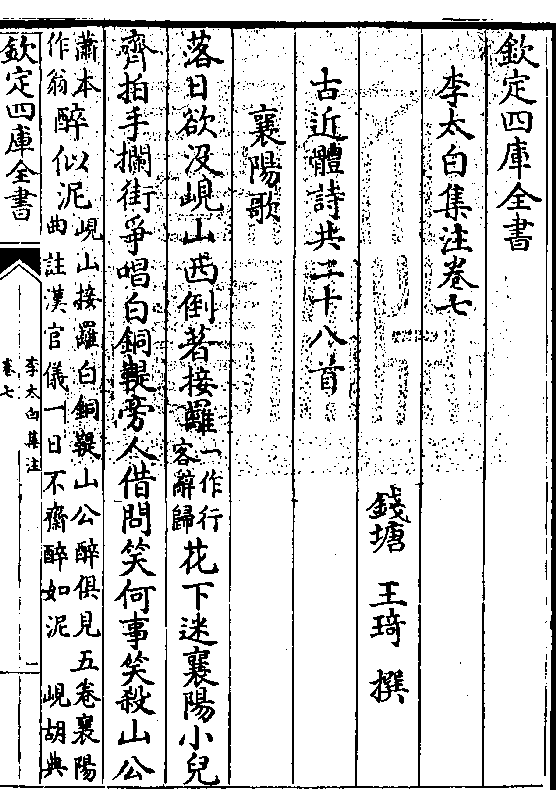 欽定四庫全書
李太白集注卷七
錢塘 王琦 撰
古近體詩共二十八首
襄陽歌
落日欲没峴山西倒著接䍦一作行客辭歸花下迷襄陽小兒
齊拍手攔街爭唱白銅鞮旁人借問笑何事笑殺山公
蕭本作翁醉似泥峴山接羅白銅鞮山公醉俱見五卷襄陽曲註漢官儀一日不齋醉如泥 峴胡典
欽定四庫全書
李太白集注
卷七
一